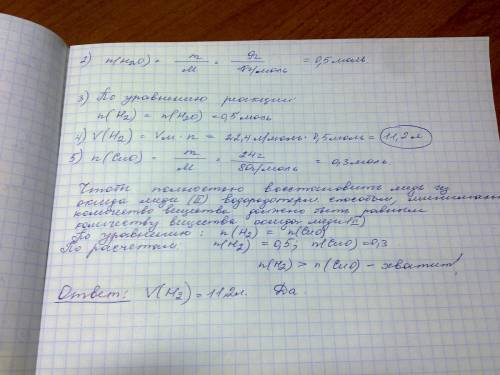 2) n(H2O) = m/M = 9г/18г/моль = 0,5 моль
3) По уравнению реакции
n(H2) = n(H2O) = 0,5 моль
4) V(H2) = Vм · n = 22,4 л/моль · 0,5 моль = 11,2 л
5) n(CuO) = m/M = 24г/80г/моль = 0,3 моль
Чтобы полностью восстановить медь из
оксида меди (II) способом,
количество вещества должно быть равным
количеству вещества оксида меди (II)
По уравнению: n(H2) = n(CuO)
По расчетам: n(H2) = 0,5; n(CuO) = 0,3
n(H2) > n(CuO) – хватит!
Ответ: V(H2) = 11,2л. Да.